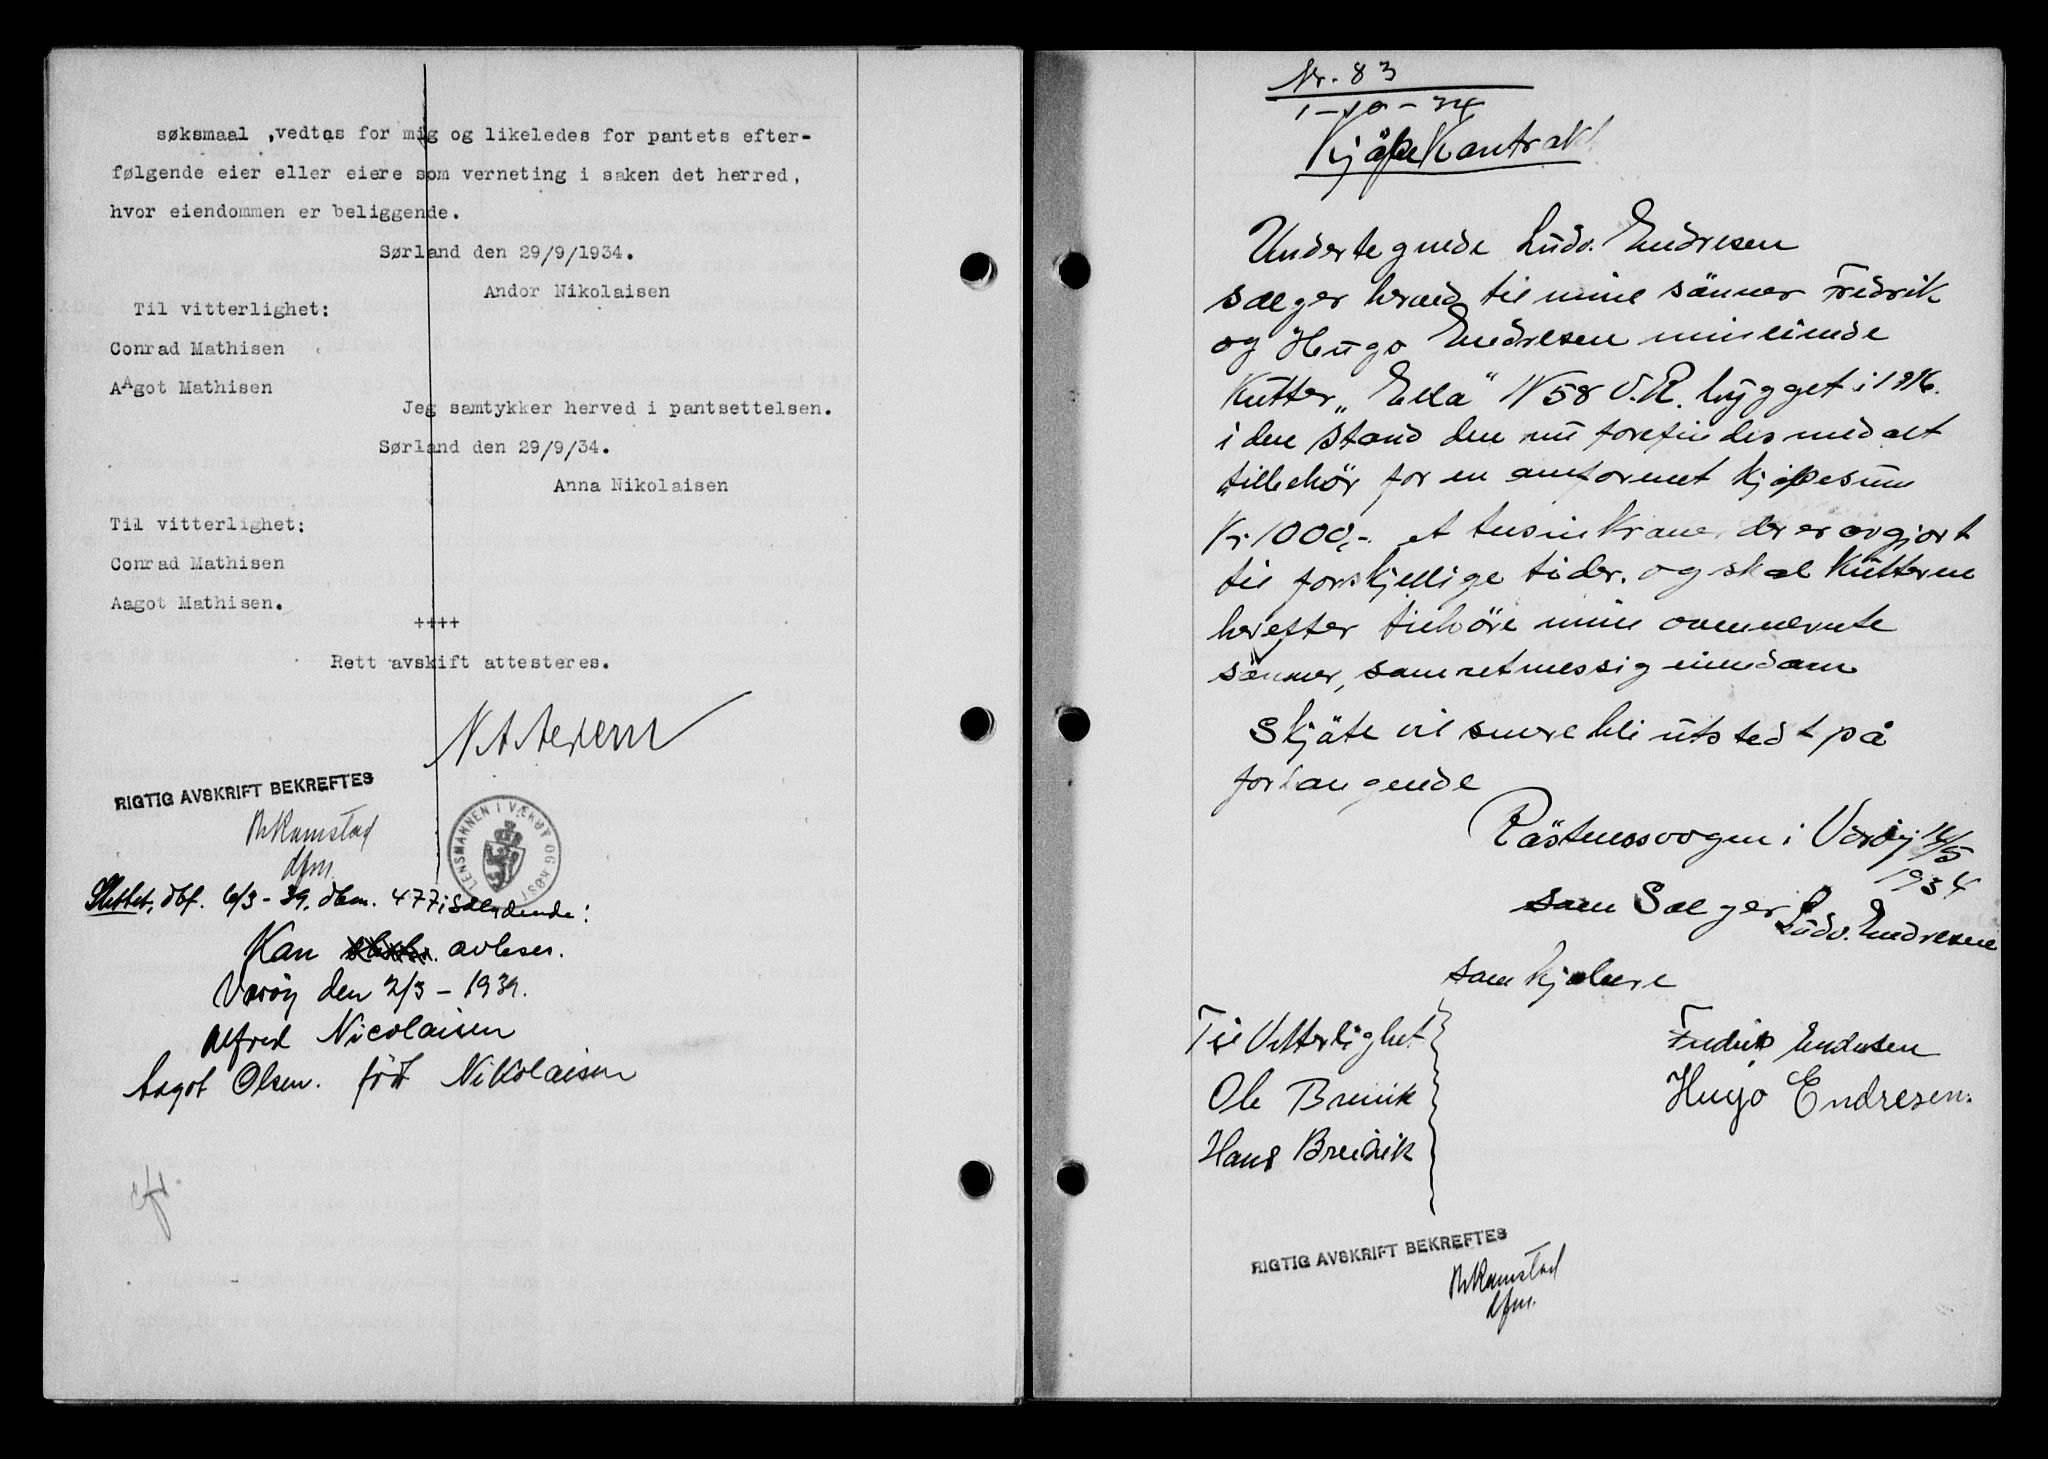 søksmaal ,vedtas for mig og likeledes for pantets efter-
følgende eier eller eiere som verneting i saken det herred,
hvor eiendommen er beliggende.
Sørland den 29/9/1934.
Andor Nikolaisen
Til vitterlighet:
Conrad Mathisen
AAgot Mathisen
Jeg samtykker herved i pantsettelsen.
Sørland den 29/9/34.
Anna Nikolaisen
Til vitterlighet:
Conrad Mathisen
Aagot Mathisen.
++++
Rett avskift attesteres.
RIGTIG AVSKRIFT BEKREFTES
LENSMANNEN I VÆRØY OG RØST
Slettet, dbf. 6/3 - 39. dbm. 477, saalydende:
Kan avleses.
Værøy den 2/3 - 1939.
Alfred Nicolaisen
Aagot Olsen. födt Nikolaisen
Nr. 83
1-10-34
KjöpeKontrakt
Undertegnede Ludv. Endresen
sælger herved til mine sönner Fredrik
og Hugo Endresen min eiende
Kutter „Ella" N 58 V.R. bygget i 1916.
i den stand den nu forefindes med alt
tilbehör for en omforenet kjøpesum
Kr 1000,- et tusin kroner der er avgjort
til forskjellige tider. og skal kutteren
herefter tilhöre mine ovennevnte
sönner, som retmessig eiendom
Skjöte vil senere bli utstedt på
forlangende
i Væröy 16/5
1934
som Sælger
Ludv. Endresen
som kjøbere
Til Vitterlighet
Fredrik Endresen
Ole Breivik
Hugo Endresen.
Hans Breivik
RIGTIG AVSKRIFT BEKREFTES